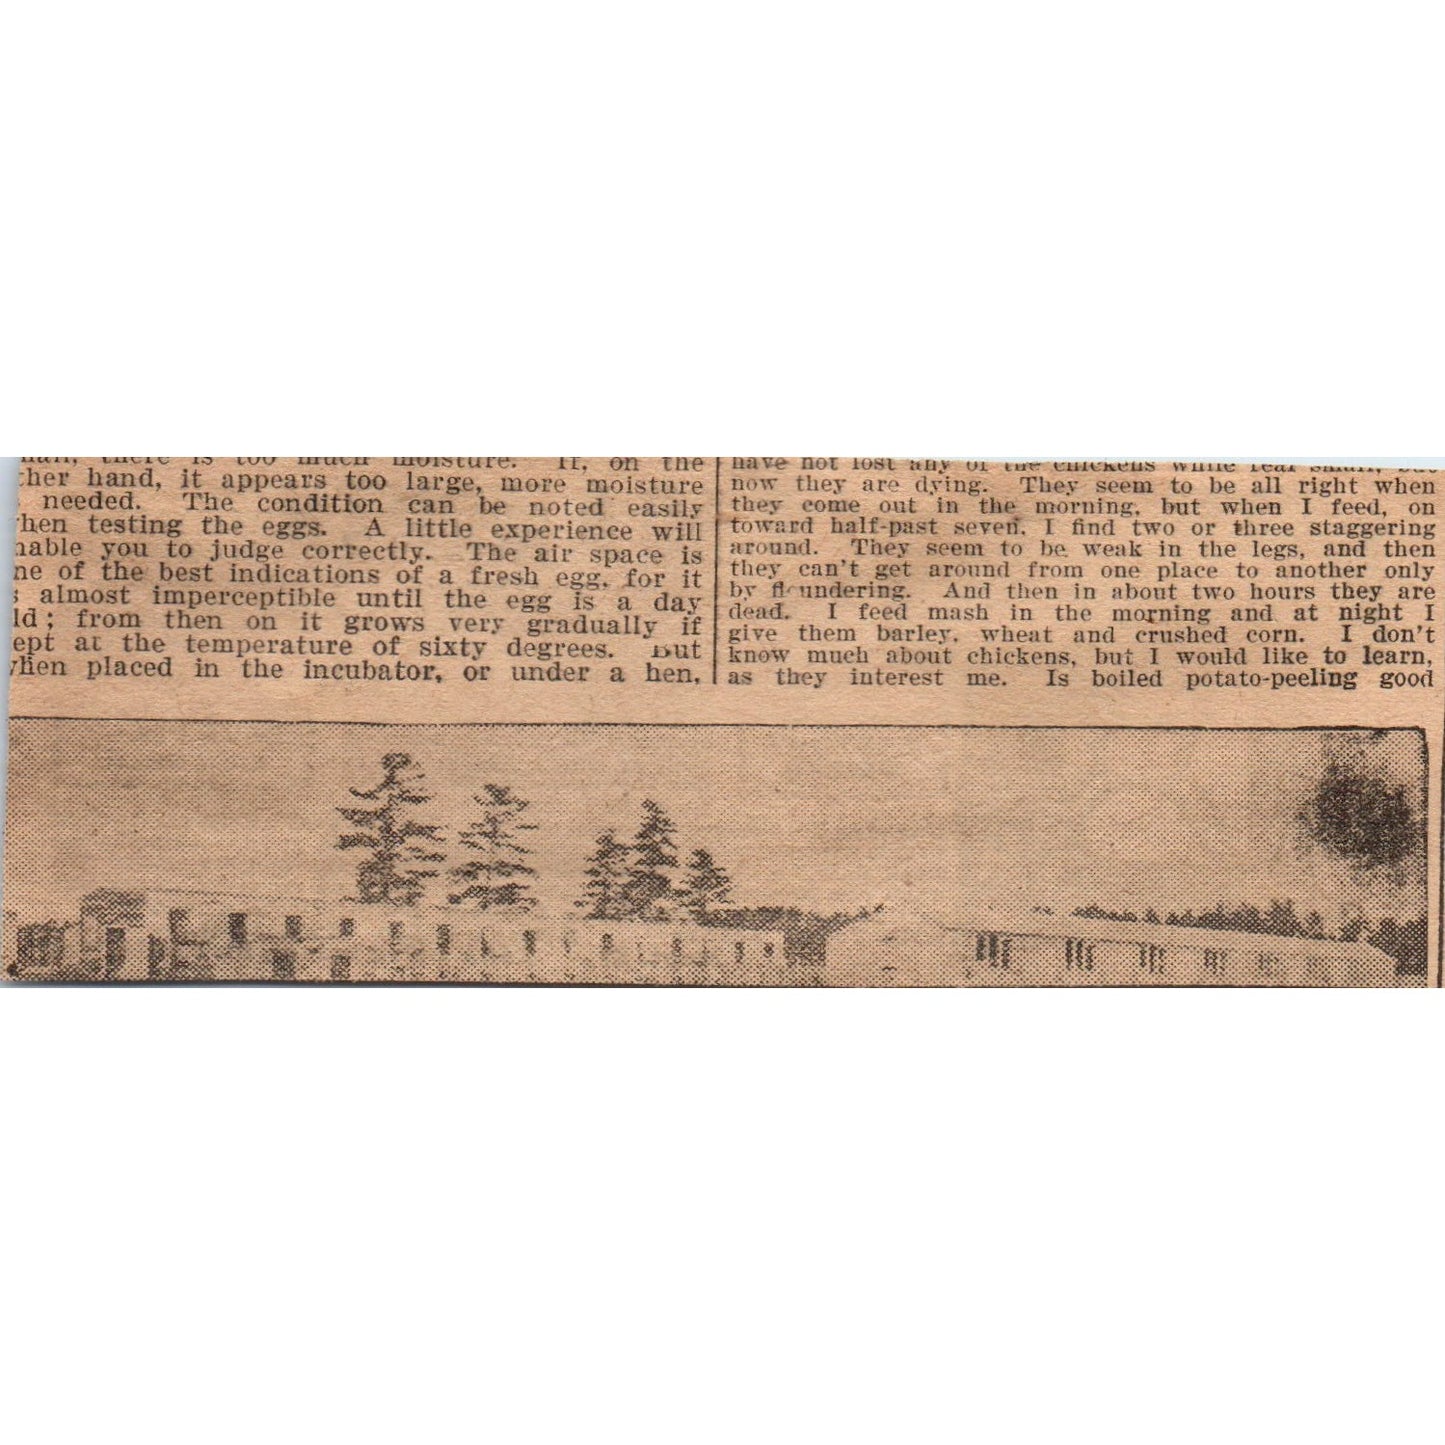 there is too much moisture. If, on the
ther hand, it appears too large, more moisture
needed. The condition can be noted easily
hen testing the eggs. A little experience will
nable you to judge correctly. The air space is
ne of the best indications of a fresh egg, for it
s almost imperceptible until the egg is a day
ld; from then on it grows very gradually if
ept at the temperature of sixty degrees. But
hen placed in the incubator, or under a hen,
have not lost any of the chickens while real small, but
now they are dying. They seem to be all right when
they come out in the morning, but when I feed, on
toward half-past seven, I find two or three staggering
around. They seem to be weak in the legs, and then
they can't get around from one place to another only
by floundering. And then in about two hours they are
dead. I feed mash in the morning and at night I
give them barley, wheat and crushed corn. I don't
know much about chickens, but I would like to learn,
as they interest me. Is boiled potato-peeling good